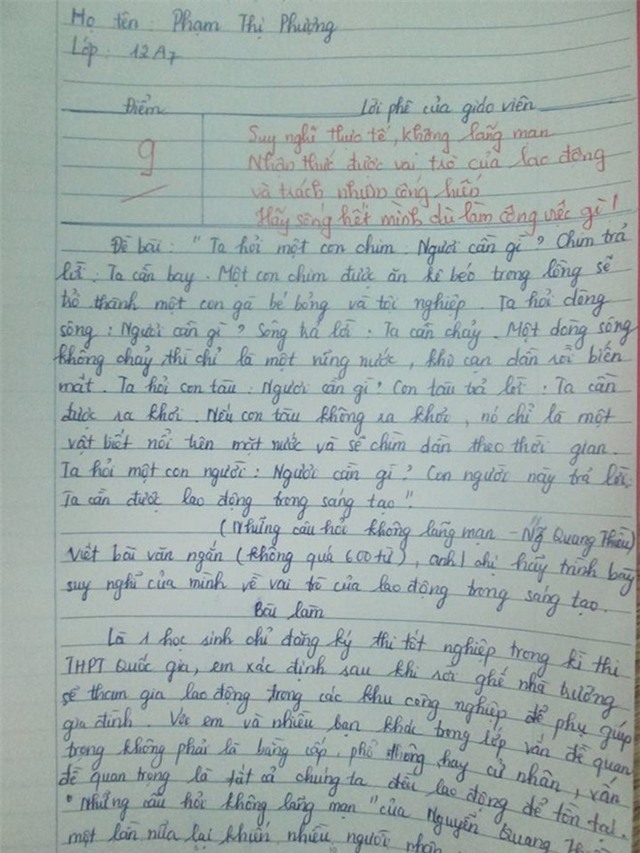 Họ tên: Phạm Thị Phượng
Lớp: 12A7
Điểm
Lời phê của giáo viên
9
Suy nghĩ thực tế, không lãng mạn
Nhận thức được vai trò của lao động
và trách nhiệm cống hiến
Hãy sống hết mình dù làm công việc gì!
Đề bài: "Ta hỏi một con chim: Ngươi cần gì? Chim trả
lời: Ta cần bay. Một con chim được ăn kê béo trong lồng sẽ
trở thành một con gà bé bỏng và tội nghiệp. Ta hỏi dòng
sông: Ngươi cần gì? Sông trả lời: Ta cần chảy. Một dòng sông
không chảy thì chỉ là một vũng nước, khô cạn dần rồi biến
mất. Ta hỏi con tàu: Ngươi cần gì? Con tàu trả lời: Ta cần
được ra khơi. Nếu con tàu không ra khơi, nó chỉ là một
vật biết nổi trên mặt nước và sẽ chìm dần theo thời gian.
Ta hỏi một con người: Ngươi cần gì? Con người này trả lời:
Ta cần được lao động trong sáng tạo".
(Những câu hỏi không lãng mạn - Ng~ Quang Thiều)
Viết bài văn ngắn (không quá 600 từ), anh/chị hãy trình bày
suy nghĩ của mình về vai trò của lao động trong sáng tạo.
Bài làm
Là 1 học sinh chỉ đăng ký thi tốt nghiệp trong kì thi
THPT Quốc gia, em xác định sau khi rời ghế nhà trường
sẽ tham gia lao động trong các khu công nghiệp để phụ giúp
gia đình. Với em và nhiều bạn khác trong lớp vấn đề quan
trọng không phải là bằng cấp, phổ thông hay cử nhân, vấn
đề quan trọng là tất cả chúng ta đều lao động để tồn tại.
"Những câu hỏi không lãng mạn" của Nguyễn Quang
một lần nữa lại khiến nhiều người